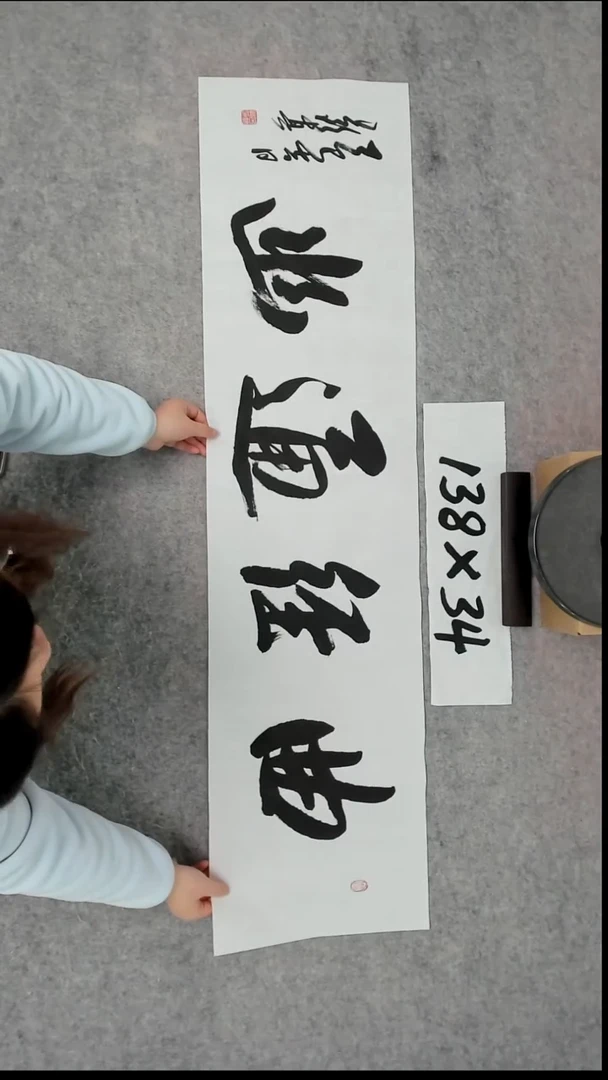 曲径通幽
138×34